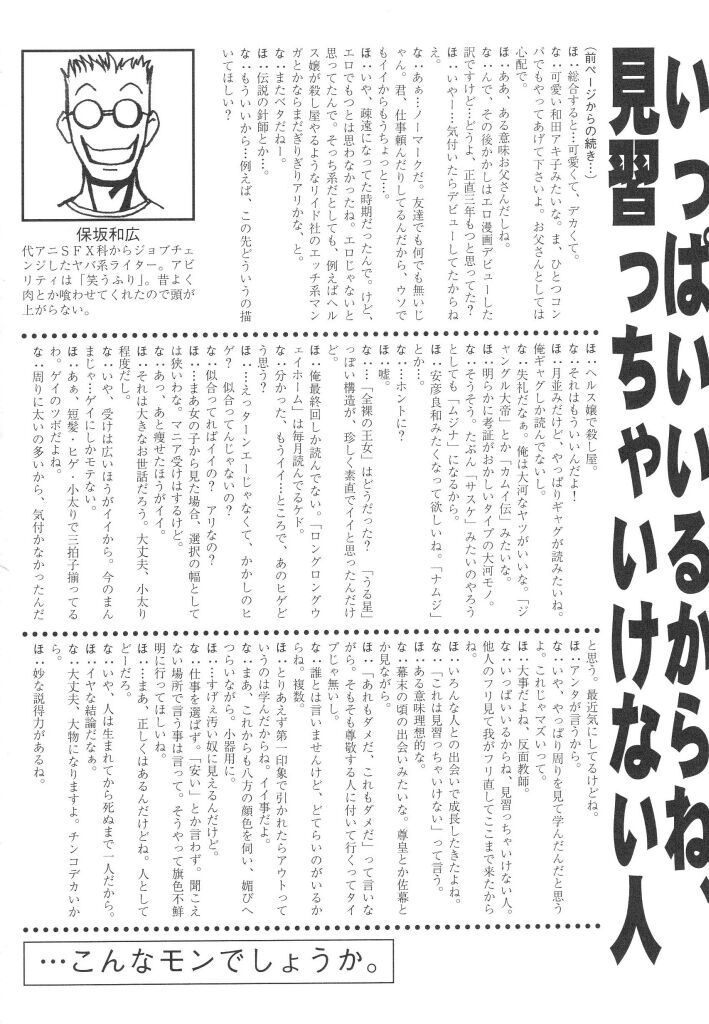 いっぱいいるからね、
見習っちゃいけない人
(前ページからの続き…)
ほ：総合すると…可愛くて、デカくて。
な：可愛い和田アキ子みたいな。ま、ひとつコン
パでもやってあげて下さいよ。お父さんとしては
心配で。
ほ：ああ、ある意味お父さんだしね。
な：んで、その後かかしはエロ漫画デビューした
訳ですけど…どうよ、正直三年もつと思ってた？
ほ：いやー…気付いたらデビューしてたからね
え。
な：あぁ…ノーマークだ。友達でも何でも無いじ
ゃん。君、仕事頼んだりしてるんだから、ウソで
もイイからもうちょっと…。
ほ：いや、疎遠になってた時期だったんで。けど、
エロでもつとは思わなかったね。エロじゃないと
思ってたんで。そっち系だとしても、例えばヘル
ス嬢が殺し屋やるようなリイド社のエッチ系マン
ガとかならまだぎりぎりアリかな、と。
な：またベタだねー。
ほ：伝説の針師とか…。
な：もういいから…例えば、この先どういうの描
いてほしい？
保坂和広
代アニSFX科からジョブチェ
ンジしたヤバ系ライター。アビ
リティは「笑うふり」。昔よく
肉とか喰わせてくれたので頭が
上がらない。
ほ：ヘルス嬢で殺し屋。
な：それはもういいんだよ！
ほ：月並みだけど、やっぱりギャグが読みたいね。
俺ギャグしか読んでないし。
な：失礼だなぁ。俺は大河なヤツがいいな。「ジ
ャングル大帝」とか「カムイ伝」みたいな。
ほ：明らかに考証がおかしいタイプの大河モノ。
な：そうそう。たぶん「サスケ」みたいのやろう
としても「ムジナ」になるから。
ほ：安彦良和みたくなって欲しいね。「ナムジ」
とか…。
な：…ホントに？
ほ：嘘。
な：…「全裸の王女」はどうだった？「うる星」
っぽい構造が、珍しく素直でイイと思ったんだけ
ど。
ほ：俺最終回しか読んでない。「ロングロングウ
ェイホーム」は毎月読んでるケド。
な：分かった、もうイイ…ところで、あのヒゲど
う思う？
ほ：…えっターンエーじゃなくて、かかしのヒ
ゲ？ 似合ってんじゃないの？
な：似合ってればイイの？ アリなの？
ほ：…まあ女の子から見た場合、選択の幅として
は狭いわな。マニア受けはするけど。
な：あっ、あと痩せたほうがイイ。
ほ：それは大きなお世話だろう。大丈夫、小太り
程度だし。
な：いや、受けは広いほうがイイから。今のまん
まじゃ…ゲイにしかモテない。
ほ：あぁ、短髪・ヒゲ・小太りで三拍子揃ってる
わ。ゲイのツボだよね。
な：周りに太いの多いから、気付かなかったんだ
と思う。最近気にしてるけどね。
ほ：アンタが言うから。
な：いや、やっぱり周りを見て学んだんだと思う
よ。これじゃマズいって。
ほ：大事だよね、反面教師。
な：いっぱいいるからね、見習っちゃいけない人。
他人のフリ見て我がフリ直してここまで来たから
ね。
ほ：いろんな人との出会いで成長したきたよね。
な：「これは見習っちゃいけない」って言う。
ほ：ある意味理想的な。
な：幕末の頃の出会いみたいな。尊皇とか佐幕と
か見ながら。
ほ：「あれもダメだ、これもダメだ」って言いな
がら。そもそも尊敬する人に付いて行くってタイ
プじゃ無いし。
な：誰とは言いませんけど、どてらいのがいるか
らね。複数。
ほ：とりあえず第一印象で引かれたらアウトって
いうのは学んだからね。イイ事だよ。
な：まあ、これからも八方の顔色を伺い、媚びへ
つらいながら。小器用に。
ほ：…すげぇ汚い奴に見えるんだけど。
な：仕事を選ばず。「安い」とか言わず。聞こえ
ない場所で言う事は言って。そうやって旗色不鮮
明に行ってほしいね。
ほ：…まあ、正しくはあるんだけどね。人として
どーだろ。
な：いや、人は生まれてから死ぬまで一人だから。
ほ：イヤな結論だなぁ。
な：大丈夫、大物になりますよ。チンコデカいか
ら。
ほ：妙な説得力があるね。
…こんなモンでしょうか。